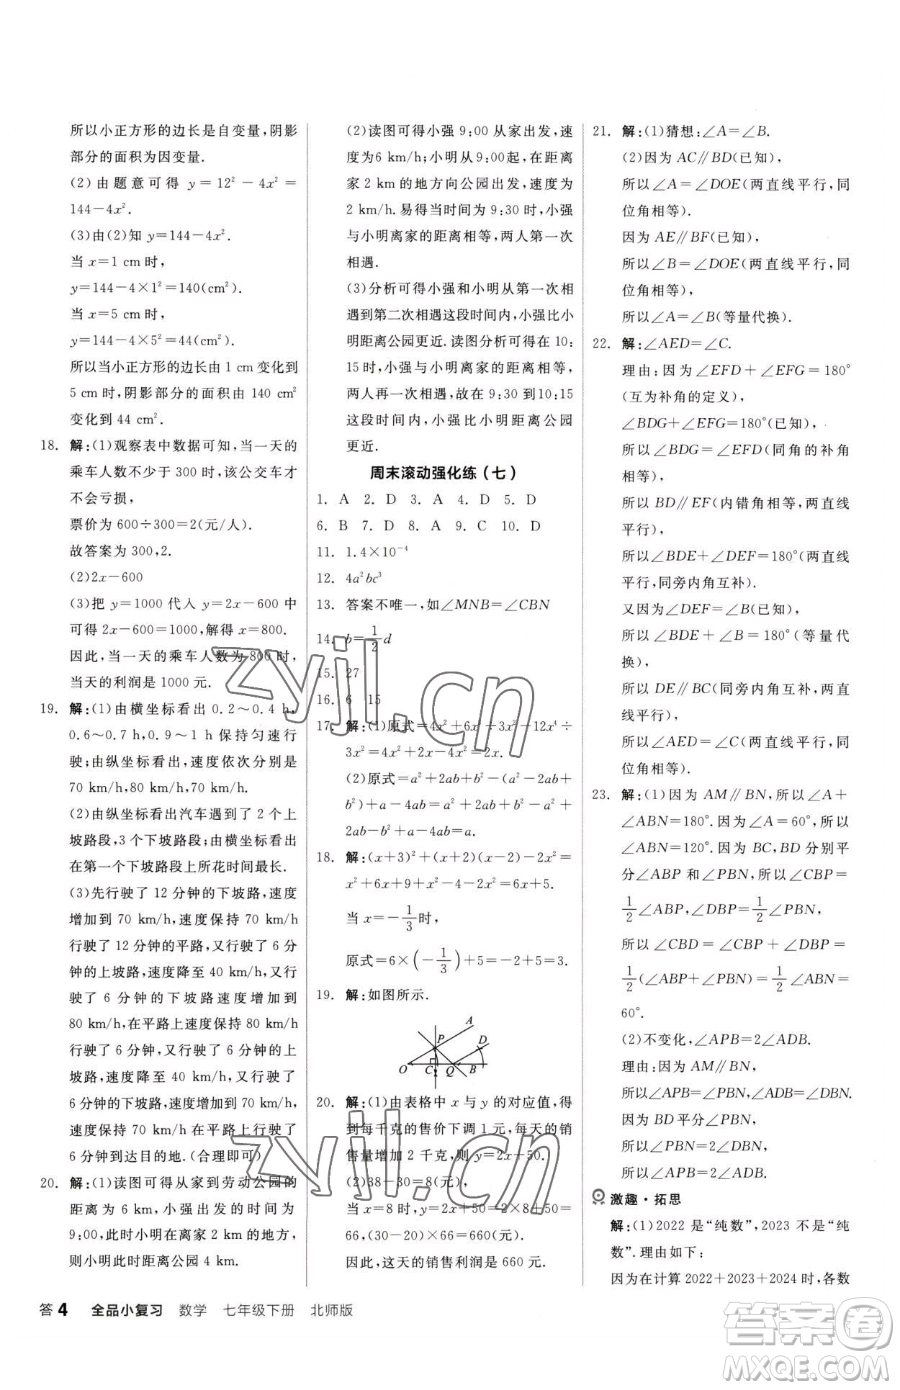 所以小正方形的边长是自变量,阴影
部分的面积为因变量.
(2)由题意可得 y=12²-4x²=
144-4x².
(3)由(2)知 y=144-4x².
当 x=1 cm时,
y=144-4×1²=140(cm²).
当 x=5 cm时,
y=144-4×5²=44(cm²).
所以当小正方形的边长由 1 cm变化到
5 cm时,阴影部分的面积由 140 cm²
变化到 44 cm².
18. 解:(1)观察表中数据可知,当一天的
乘车人数不少于 300 时,该公交车才
不会亏损,
票价为 600÷300=2(元/人).
故答案为 300,2.
(2)2x-600
(3)把 y=1000 代入 y=2x-600 中
可得 2x-600=1000,解得 x=800.
因此,当一天的乘车人数为 800 时,
当天的利润是 1000 元.
19. 解:(1)由横坐标看出 0.2~0.4 h,
0.6~0.7 h,0.9~1 h 保持匀速行
驶;由纵坐标看出,汽车遇到 1 个
上坡路段.
(2)由纵坐标看出汽车遇到了 2 个上
坡路段,3 个下坡路段;由横坐标看出
在第一个下坡路段上所花时间最长.
(3)先行驶了 12 分钟的下坡路,速度
增加到 70 km/h,速度保持 70 km/h
行驶了 12 分钟的平路,又行驶了 6 分
钟的上坡路,速度降至 40 km/h,又行
驶了 6 分钟的下坡路速度增加到
80 km/h,在平路上速度保持 80 km/h
行驶了 6 分钟,又行驶了 6 分钟的上坡
路,速度降至 70 km/h,又行驶 6 分钟
下坡路到达目的地.(合理即可)
20. 解:(1)读图可得从家到劳动公园的
距离为 4 km,小强出发的时间为
9:00,此时他距离公园 4 km.
则小明出发时距离公园 4 km.
(2)读图可得小强 9:00 从家出发,速
度为6 km/h;小明从9:00起,在距离
家 2 km 的地方向公园出发,速度为
2 km/h.易得当时间在 9:30 时,小强
与小明离家的距离相等,两人第一次
相遇.
(3)分析可得小强和小明从第一次相
遇到第二次相遇这段时间内,小强比
小明距离公园更近.读图可得在 10:
15时,小强与小明离家的距离相等,
两人再次相遇,故在 9:30 到 10:15
这段时间内,小强比小明距离公园
更近.
周末滚动强化练(七)
1. A 2. D 3. A 4. D 5. D
6. B 7. D 8. A 9. C 10. D
11. 1.4×10⁻⁴
12. 4a²bc³
13. 答案不唯一,如∠MNB=∠CBN
14. b=1/2d
15. 27
16. 6 15
17. 解:(1)原式=4x²+6x³÷3x²-12x⁴÷
3x²=4x²+2x-4x²=2x.
(2)原式=a²+2ab+b²-(a²-2ab+
b²)+a²-4ab=a²+2ab+b²-a²+
2ab-b²+a²-4ab=a².
18. 解:(x+3)²+(x+2)(x-2)-2x²=
x²+6x+9+x²-4-2x²=6x+5.
当 x=-1/3时,
原式=6×(-1/3)+5=-2+5=3.
19. 解:如图所示.
A
P D
O C Q B
20. 解:(1)由表格中 x 与 y 的对应值,得
到每千克的售价下调 1 元,每天的
销售量增加 2 千克,则 y=2x+50.
(2)38-30=8(元),
当 x=8 时,y=2x+50=2×8+50=
66,(30-20)×66=660(元).
因此,这一天的销售利润为 660 元.
21. 解:(1)猜想:∠A=∠B.
(2)因为 AC∥BD(已知),
所以∠A=∠DOE(两直线平行,同
位角相等).
因为 AE∥BF(已知),
所以∠B=∠DOE(两直线平行,同
位角相等),
所以∠A=∠B(等量代换).
22. 解:∠AED=∠C.
理由:因为∠EFD+∠EFG=180°
(互为补角的定义),
∠BDG+∠EFG=180°(已知),
所以∠BDG=∠EFD(同角的补角
相等),
所以 BD∥EF(内错角相等,两直线
平行),
所以∠BDE+∠DEF=180°(两直线
平行,同旁内角互补).
又因为∠DEF=∠B(已知),
所以∠BDE+∠B=180°(等量代
换),
所以 DE∥BC(同旁内角互补,两直
线平行),
所以∠AED=∠C(两直线平行,同位
角相等).
23. 解:(1)因为 AM∥BN,所以∠A+
∠ABN=180°.因为∠A=60°,所以
∠ABN=120°.因为 BC,BD 分别平
分∠ABP 和∠PBN,所以∠CBP=
1/2∠ABP,∠DBP=1/2∠PBN,
所以∠CBD=∠CBP+∠DBP=
1/2(∠ABP+∠PBN)=1/2∠ABN=
60°.
(2)不变化,∠APB=2∠ADB.
理由:因为 AM∥BN,
所以∠APB=∠PBN,∠ADB=∠DBN.
因为 BD平分∠PBN,
所以∠PBN=2∠DBN,
所以∠APB=2∠ADB.
激趣·拓思
解:(1)2022 是“纯数”,2023 不是“纯
数”.理由如下:
因为在计算 2022+2023+2024 时,各数
答 4 全品小复习 数学 七年级下册 北师版
zyjl.cn
zyjl.cn
答案圈
MXQE.COM